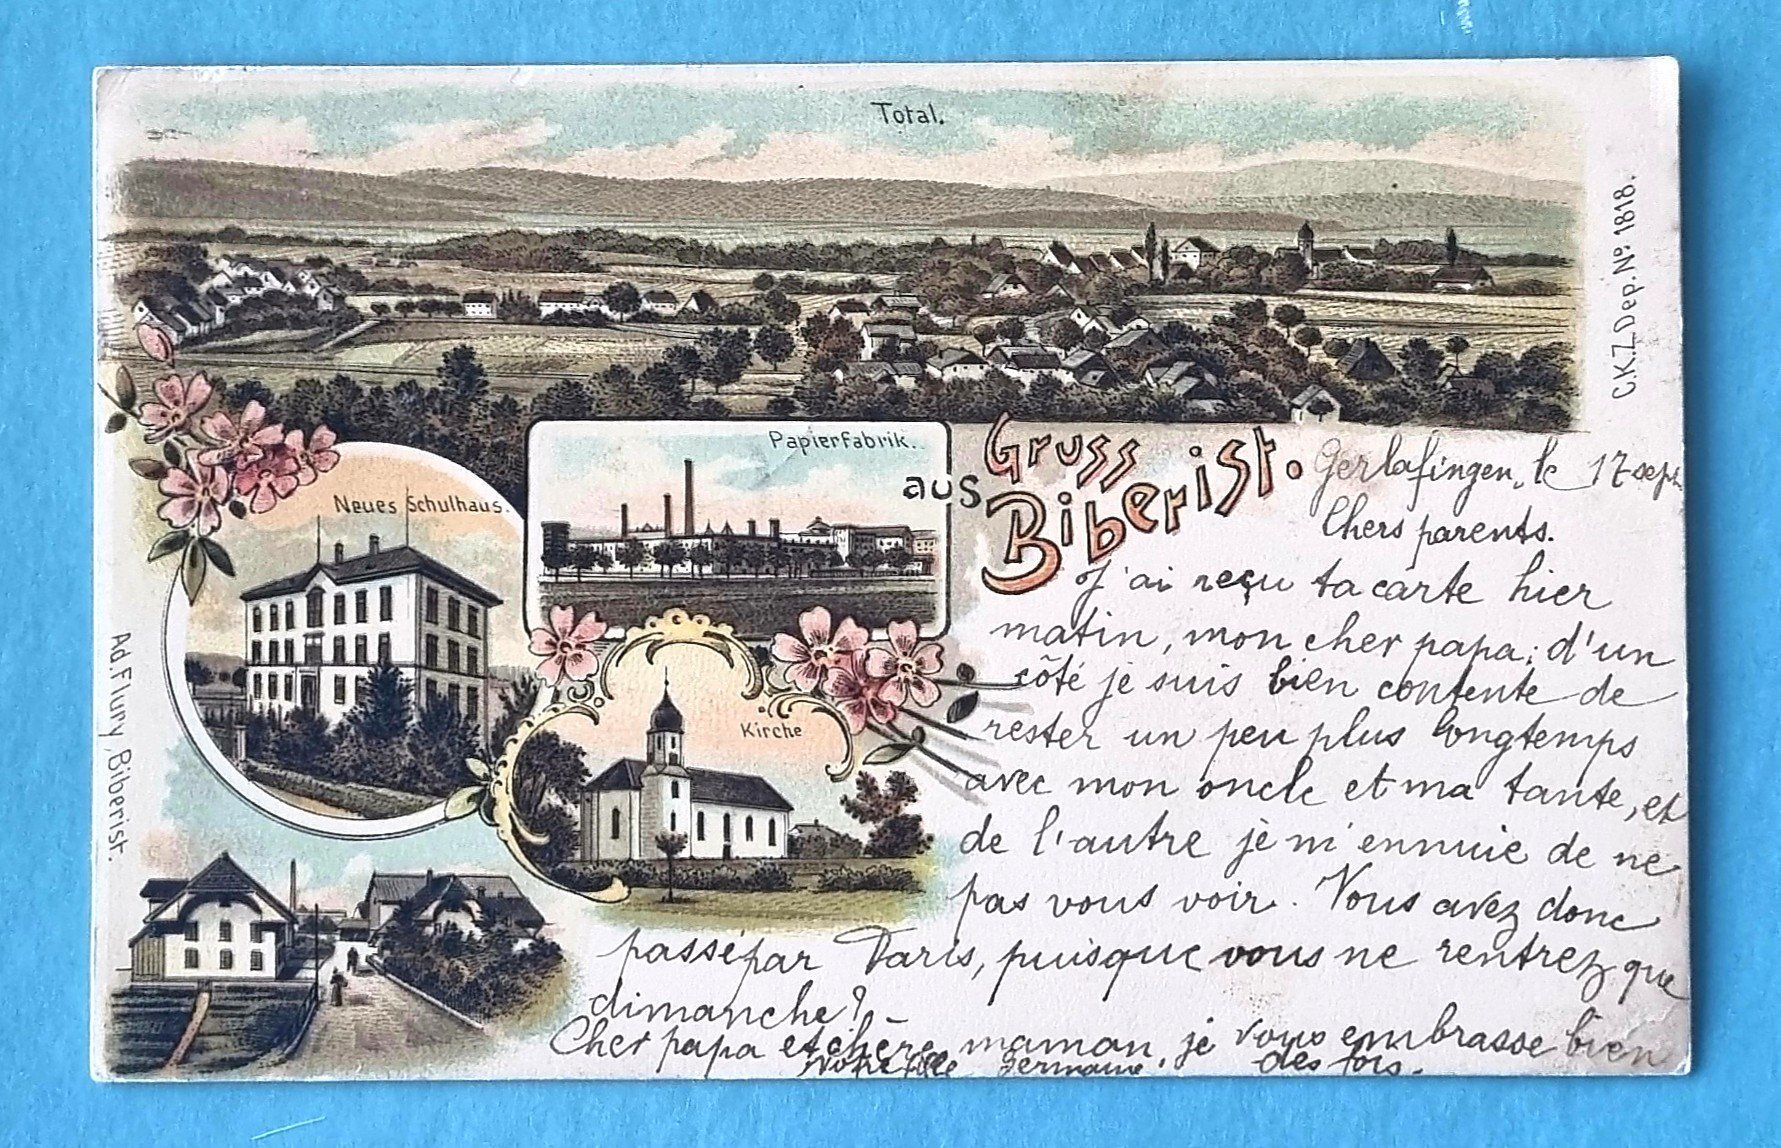 Total.
C.K.Z. Dep. No. 1818.
Papierfabrik.
Neues Schulhaus.
Gruss
aus
Biberist.
Kirche
Ad. Flury, Biberist.
Gerlafingen, le 17 sept.
Chers parents.
J'ai reçu ta carte hier
matin, mon cher papa; d'un
côté je suis bien contente de
rester un peu plus longtemps
avec mon oncle et ma tante, et
de l'autre je m'ennuie de ne
pas vous voir. Vous avez donc
passé par Paris, puisque vous ne rentrez que
dimanche?
Cher papa et chère maman, je vous embrasse bien
des fois.
Votre fille Germaine.